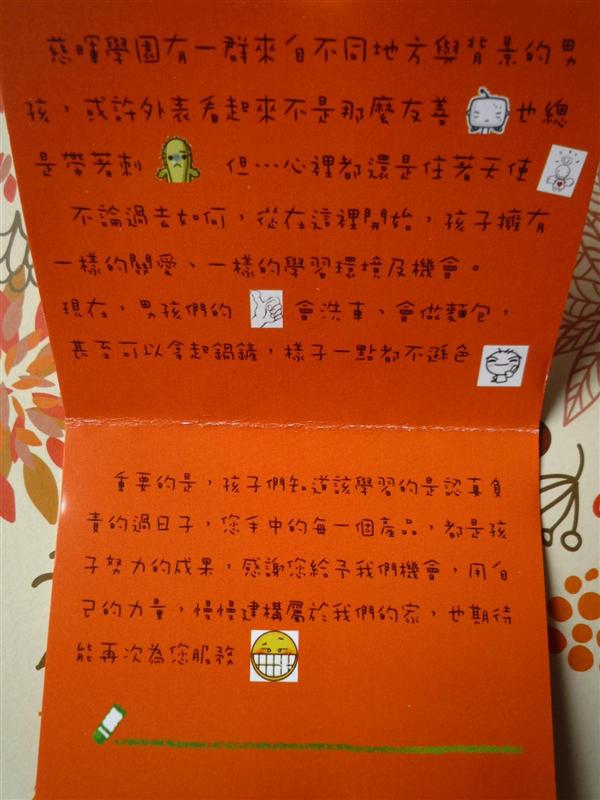 慈暉學園有一群來自不同地方與背景的男
孩，或許外表看起來不是那麼友善 也總
是帶著刺 但…心裡都還是住著天使
不論過去如何，從在這裡開始，孩子擁有
一樣的關愛、一樣的學習環境及機會。
現在，男孩們的 會洗車、會做麵包，
甚至可以拿起鍋鏟，樣子一點都不遜色
重要的是，孩子們知道該學習的是認真負
責的過日子，您手中的每一個產品，都是孩
子努力的成果，感謝您給予我們機會，用自
己的力量，慢慢建構屬於我們的家，也期待
能再次為您服務